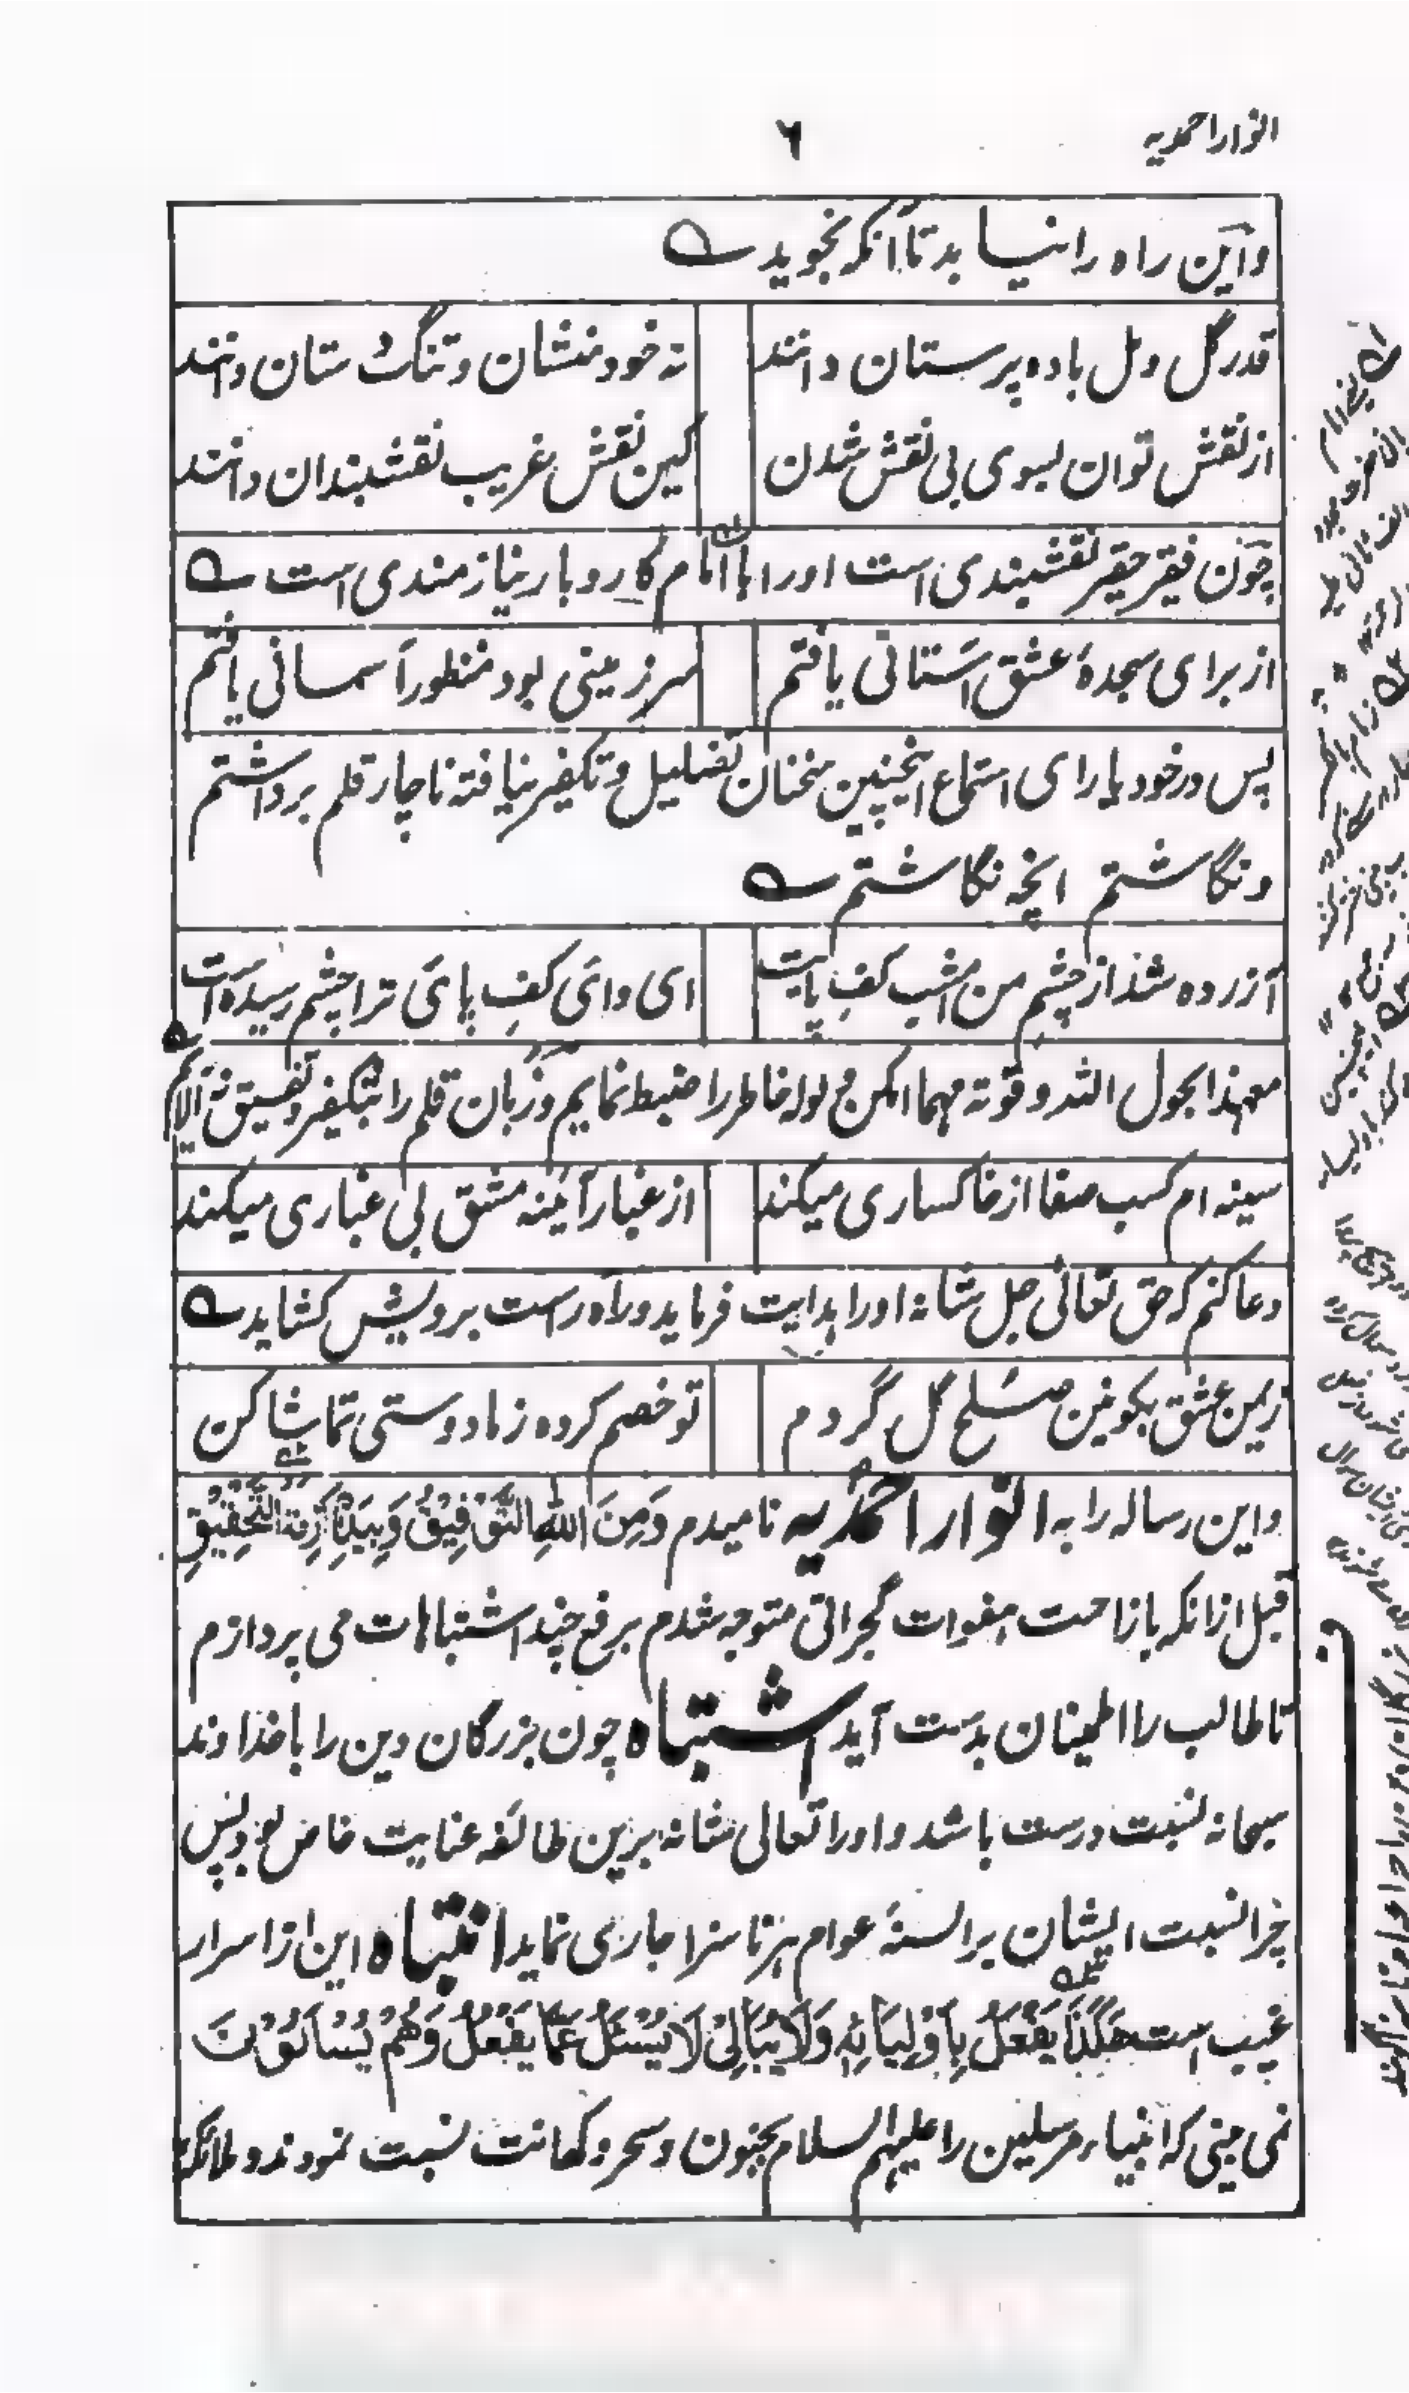 انوار احمدیه
۶
و این راه را نیابد تا آنکه نجوید
قدر گل و مل باده پرستان دانند
نه خود منشان و تنگ دستان دانند
از نقش توان بسوی بی نقش شدن
کین نقش غریب نقشبندان دانند
چون فقیر حقیر نقشبندی است او را با امام کاروبار نیازمندی است
از برای سجدهٔ عشق آستانی یافتم
سرزمینی بود منظور آسمانی یافتم
پس در خود یارای استماع اینچنین سخنان تضلیل و تکفیر نیافته ناچار قلم برداشتم
و نگاشتم انچه نگاشتم
آزرده شد از چشم من امشب کفِ پایت
ای وای کفِ پای ترا چشم رسیده است
معهذا بحول الله و قوته مهما امکن ولوله خاطر را ضبط نمایم و زبان قلم را بتکفیر و تفسیق نه آلایم
سینه ام کسب صفا از خاکساری میکند
از غبار آئینه مشق بی غباری میکند
دعا کنم که حق تعالی جل شانه او را هدایت فرماید و راه راست برویش کشاید
زیمن عشق بکونین صلح کل کردم
تو خصم کرده ز ما دوستی تماشا کن
و این رساله را به انوار احمدیه نامیدم وَمِنَ اللهِ التَّوْفِیْقُ وَبِیَدِہٖ اَزِمَّةُ التَّحْقِیْقِ
قبل ازانکه بازاحت هفوات گجراتی متوجه شدم برفع چند اشتباهات می پردازم
تا طالب را اطمینان بدست آید اشتباه چون بزرگان دین را با خداوند
سبحانه نسبت درست باشد و او را تعالی شانه برین طائفه عنایت خاص بود پس
چرا نسبت ایشان بر السنهٔ عوام هر ناسزا جاری نماید انتباه این از اسرار
غیب است هٰکَذَا یَفْعَلُ بِاَوْلِیَائِهٖ وَلَا یُبَالِیْ لَا یُسْئَلُ عَمَّا یَفْعَلُ وَهُمْ یُسْاَلُوْنَ
نمی بینی که انبیاء مرسلین را علیهم السلام بجنون و سحر و کهانت نسبت نمودند و ملائکه